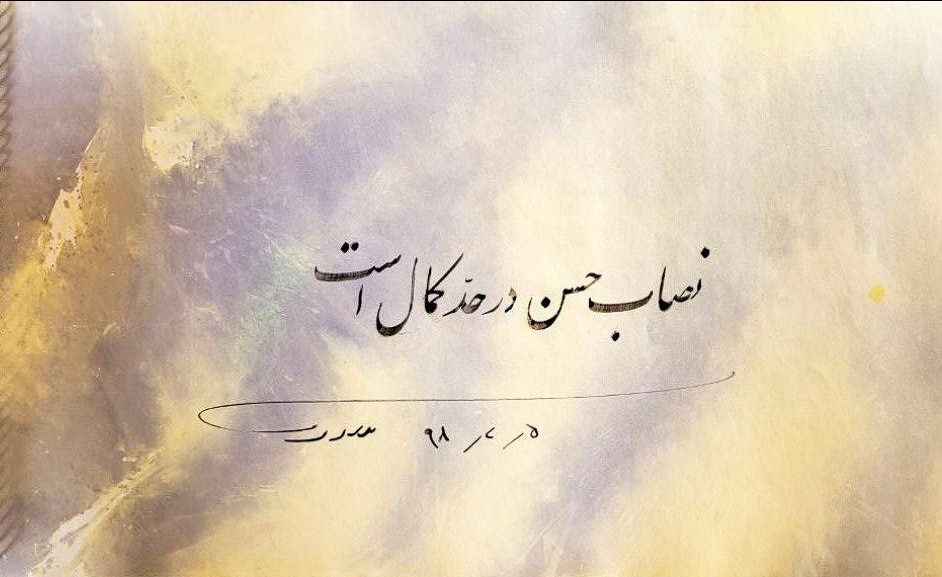 نصاب حسن در حدّ کمال است
۹۸